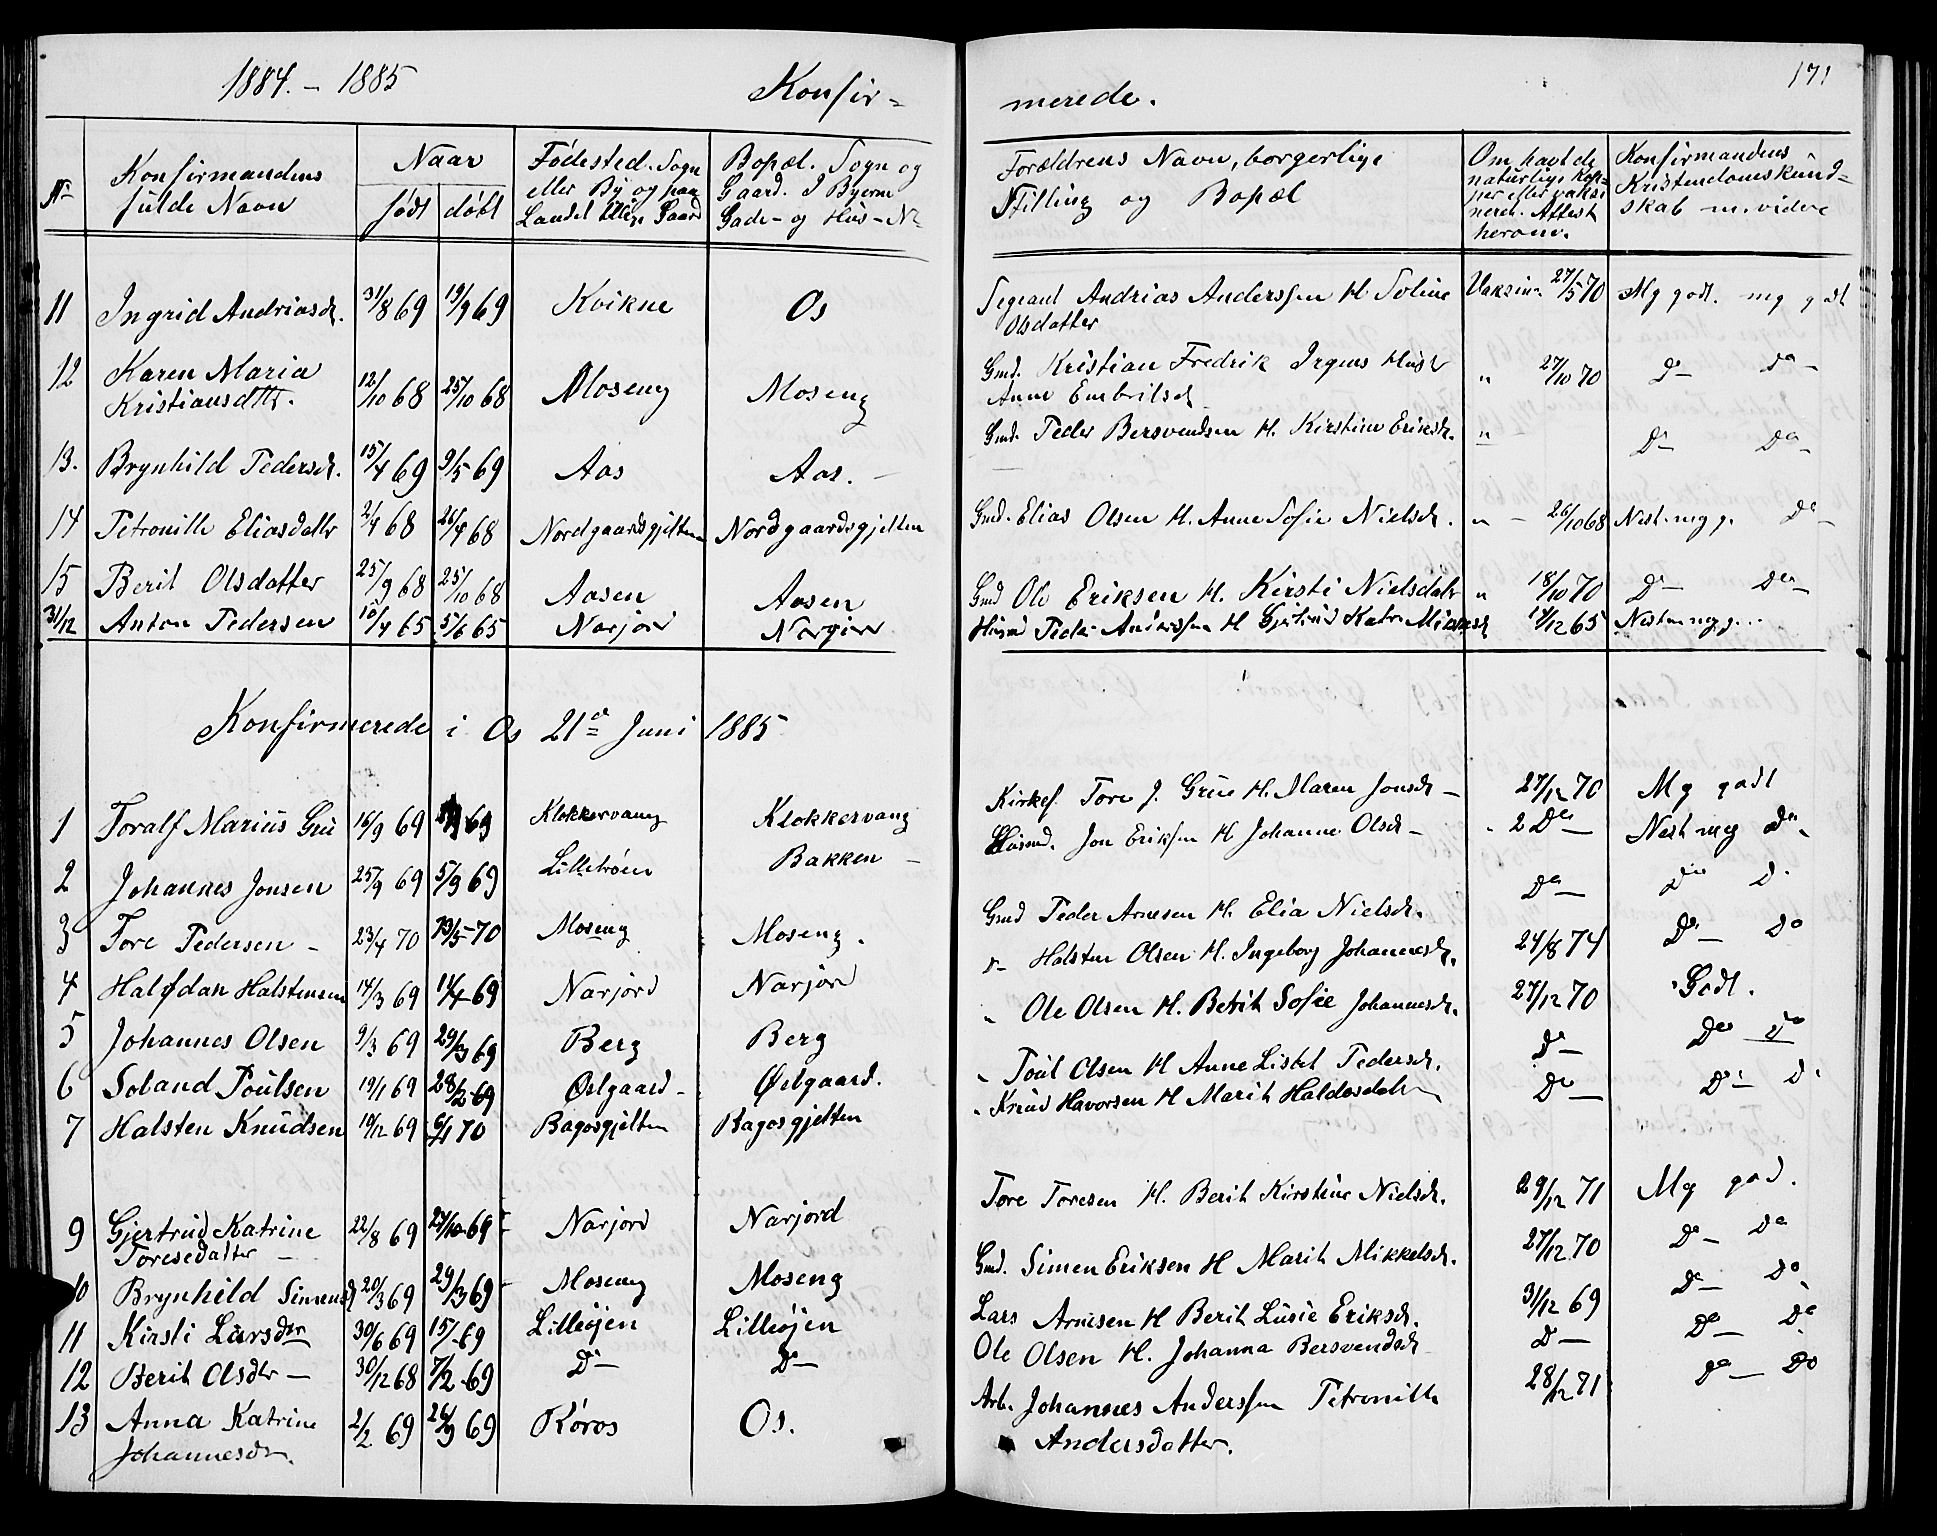 1884. – 1885 Konfir=
merede. 171
No Konfirmandens fulde Navn Naar født døbt Fødested. Sogn eller By og paa Landet tillige Gaard Bopæl. Sogn og Gaard. I Byerne Gade- og Hus-No
Forældrens Navn, borgerlige Stilling og Bopæl Om havt de naturlige Kopper eller vaksineret. Attest herom. Konfirmandens Kristendomskundskab m. videre
11 Ingrid Andriasd. 31/8 69 19/9 69 Kvikne Os Andrias Anderssen H. Soline Vaksin. 27/5 70 Mg godt. mg godt
Olsdatter
12 Karen Maria 12/10 68 25/10 68 Moseng Moseng Gmd. Kristian Fredrik Irgens Hust " 27/10 70 Do – Do –
Kristiansdtt. Anne Embritsd
13. Brynhild Pedersd. 15/4 69 9/5 69 Aas Aas. – Gmd. Peder Bersvendsen H. Kirstine Eriksd. " Do – Do –
14 Petronille Eliasdatter 2/4 68 26/4 68 Nordgaardsgjelten Nordgaardsgjelten Gmd. Elias Olsen H. Anne Sofie Nielsd. " – 26/10 68 Nest. meg g. Do –
15 Berit Olsdatter 25/9 68 25/10 68 Aasen Aasen Gmd Ole Eriksen H. Kirsti Nielsdatr " 18/10 70 Do – Do –
31/12 Anton Pedersen 10/4 65 5/6 65 Narjord Narjord Husmd Peder Anderssen H Gjertrud Katr. 14/12 65 Nesten meg g..
Konfirmerede i Os 21de Juni 1885
1 Toralf Marius Grue 16/9 69 69 Klokkervang Klokkervang Kirkes. Tore J. Grue H. Maren Jonsd – 27/12 70 Mg godt
2 Johannes Jonsen 25/9 69 5/9 69 Lilletrøen Bakken – Husmd. Jon Eriksen H Johanne Olsd – Do – Nest meg Do
3 Tore Pedersen – 23/4 70 /5 70 Moseng Moseng. Gmd Peder Arnesen H. Elia Nielsd. Do – Do D.
4 Halfdan Halstensen 14/3 69 11/4 69 Narjord Narjord Do Halsten Olsen H. Ingeborg Johannesd. 24/8 74 Do – Do
5 Johannes Olsen 9/3 69 29/3 69 Berg Berg " Ole Olsen H. Berit Sofie Johannesd. 27/12 70 Godt.
6 Soland Poulsen 19/1 69 28/2 69 Østgaard – Østgaard. " Poul Olsen H Anne Lisbet Pedersd. Do – Do Do
7 Halsten Knudsen 10/12 69 6/1 70 Bagosgjelten Bagosgjelten " Knud Havorsen H Marit Haldosdatr Do – Do – Do
9 Gjertrud Katrine 22/8 69 24/10 69 Narjord Narjord Tore Toresen H. Berit Kirstine Nielsd. 29/12 71 Mg god.
Toresedatter –
10 Brynhild Simensd 20/3 69 29/3 69 Moseng Moseng Gmd. Simen Eriksen H Marit Mikkelsd. 27/12 70 Do – Do
11 Kirsti Larsdtr 30/6 69 15/ 69 Lilleøjen Lilleøjen Lars Arnesen H Berit Lusie Eriksd. 31/12 69 Do – Do
12 Berit Olsdtr – 30/12 68 7/2 69 Do – Do – Ole Olsen H. Johanna Bersvendsd Do – Do – Do
13 Anna Katrine 2/2 69 26/9 69 Røros Os. Arb. Johannes Anderssen Petronille 28/12 71 Do – Do
Johannesdr. Andersdatter.